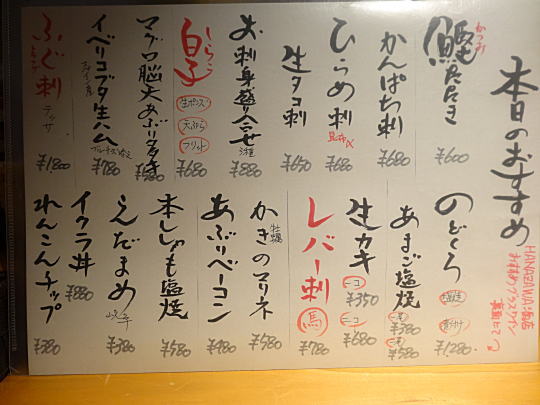 本日のおすすめ
HANAZAWA商店
おすすめグラスワイン
裏面にて
かつお
鰹たたき
¥600
かんぱち刺
¥680
ひらめ刺
昆布〆
¥680
生タコ刺
¥650
お刺身盛り合せ
3種
¥880
しらこ
白子
生ポンズ
天ぷら
フリット
¥680
マグロ脳天あぶりたたき
¥580
イベリコブタ生ハム
スペイン産
¥780
ふぐ刺
テッサ
¥1,800
のどぐろ
塩焼
煮付け
¥1,280
あまご塩焼
¥380
¥580
生カキ
一コ
¥350
二コ
¥680
レバー刺
馬
¥780
牡蠣
かきのマリネ
¥580
あぶりベーコン
¥480
本ししゃも塩焼
¥580
えだまめ
¥380
イクラ丼
¥880
れんこんチップ
¥380